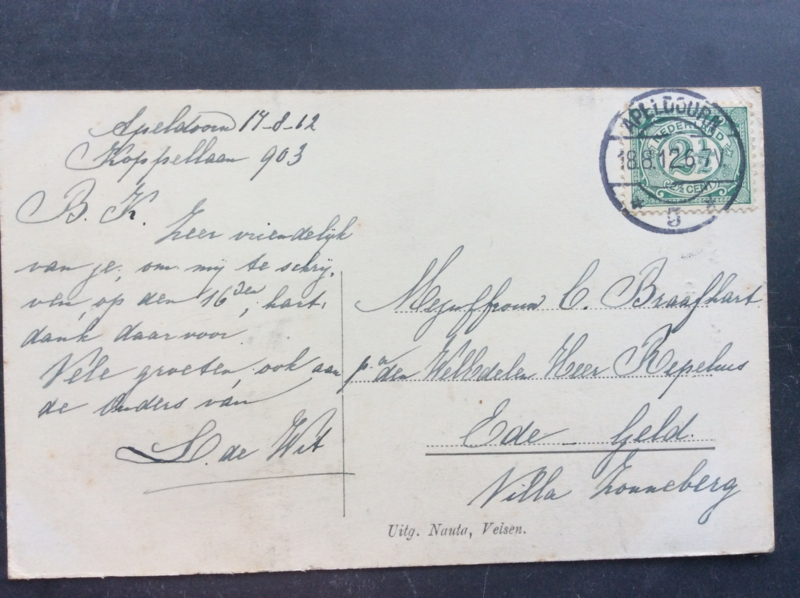 Apeldoorn 17-8-12
Koppellaan 903
B. K.
Zeer vriendelijk
van je, om mij te schrij,
ven, op den 16den, hart,
dank daarvoor.
Vele groeten ook aan
de Ouders van
S. de Wit
APELDOORN
18.8.12 6-7V
5
NEDERLAND
2½
CENT
Mejuffrouw C. Braafhart
p/a den WelEdelen Heer Repelius
Ede - Geld.
Villa Zonneberg
Uitg. Nauta, Velsen.